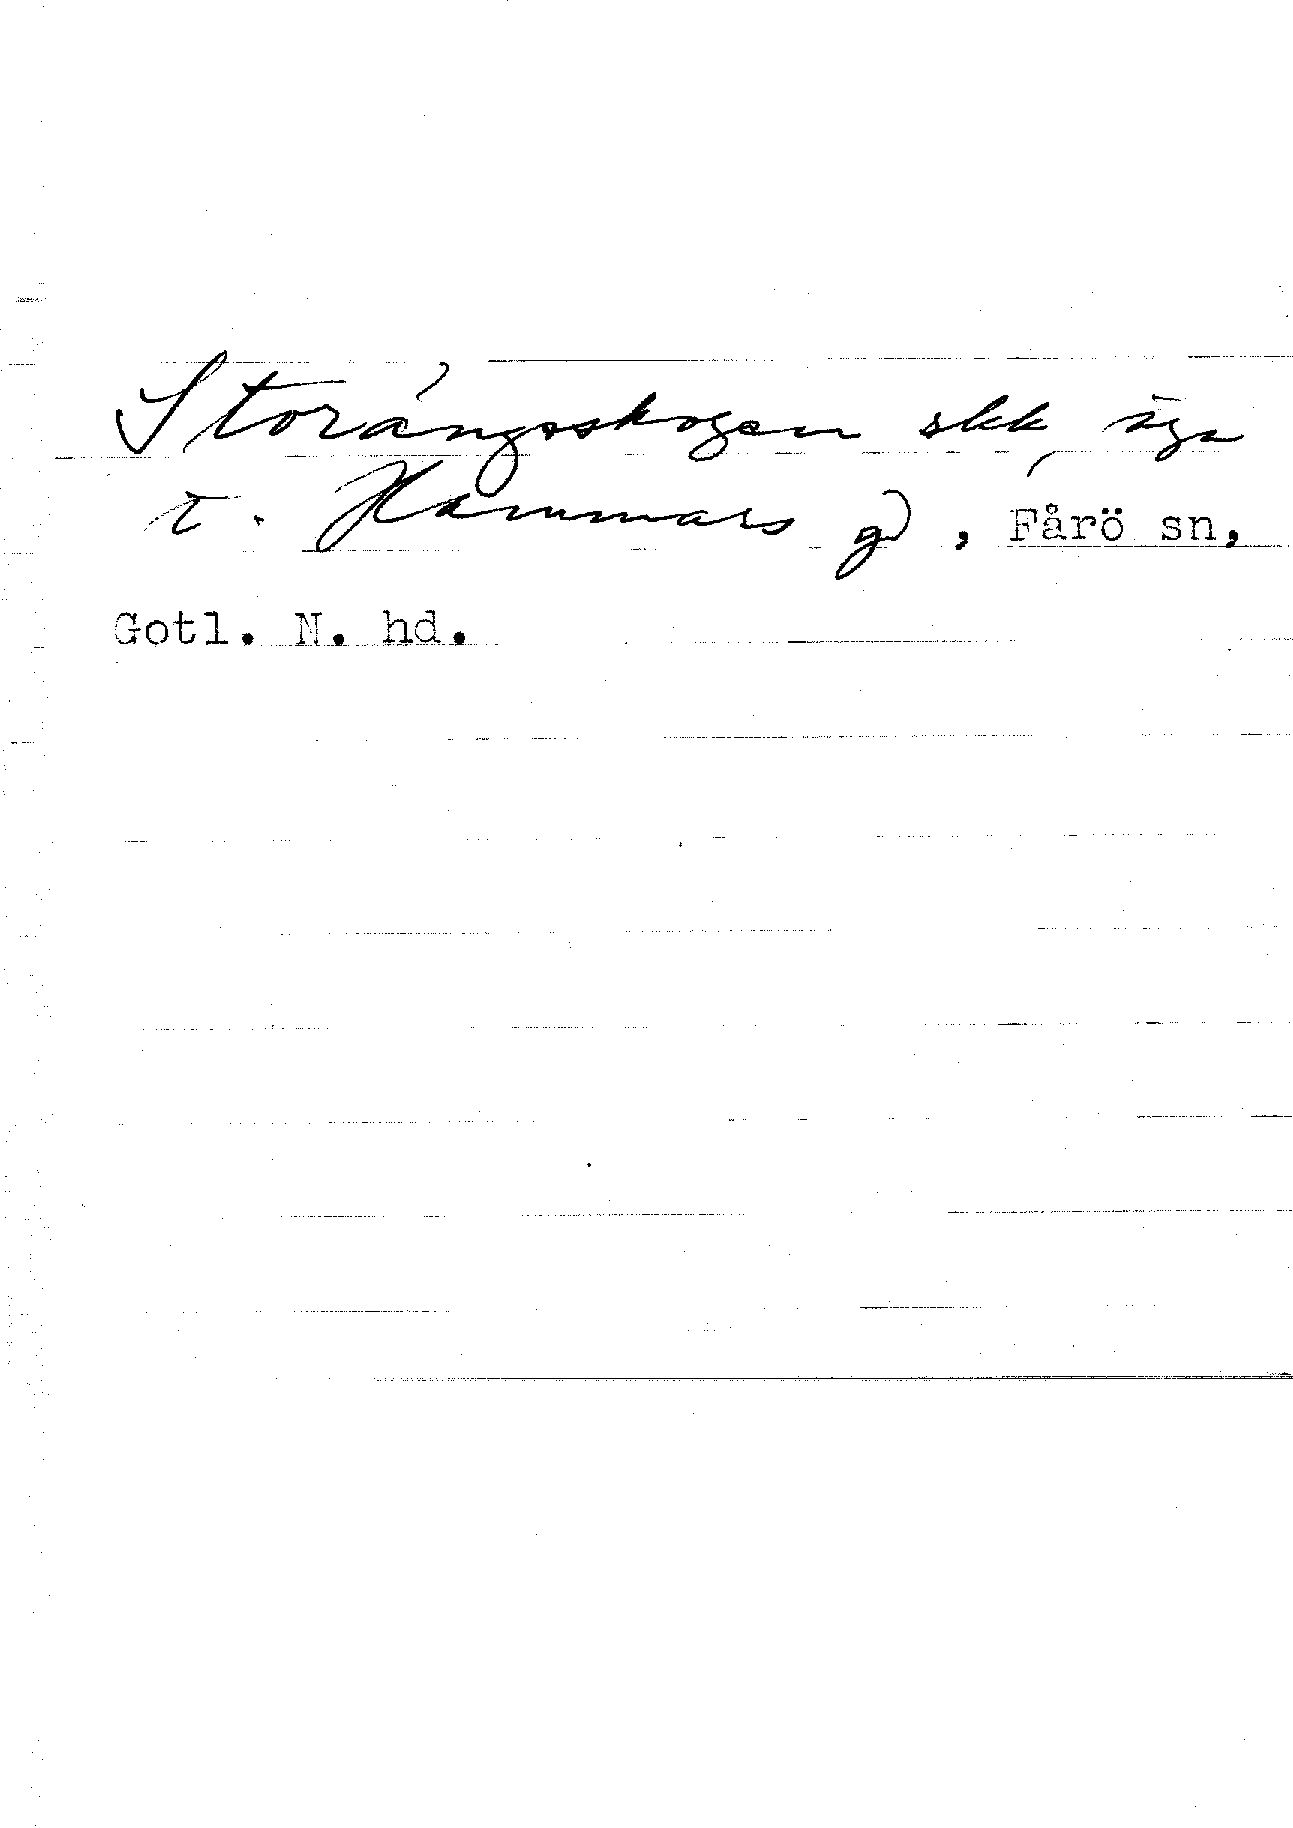 Storängsskogen skk, äga
t. Hammars gd, Fårö sn,
Gotl. N. hd.